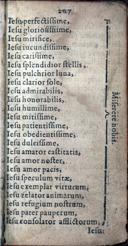 207
Iesu perfectissime,
Iesu gloriosissime,
Iesu mirifice,
Iesu iucundissime,
Iesu carissime,
Iesu splendidior stellis,
Iesu pulchrior luna,
Iesu clarior sole,
Iesu admirabilis,
Iesu honorabilis,
Iesu humillime,
Iesu mitissime,
Iesu patientissime,
Iesu obedientissime,
Iesu dulcissime,
Iesu amator castitatis,
Iesu amor noster,
Iesu amor pacis,
Iesu speculum vitæ,
Iesu exemplar virtutum,
Iesu zelator animarum,
Iesu refugium nostrum,
Iesu pater pauperum,
Iesu consolator afflictorum,
Iesu:
Miserere nobis.